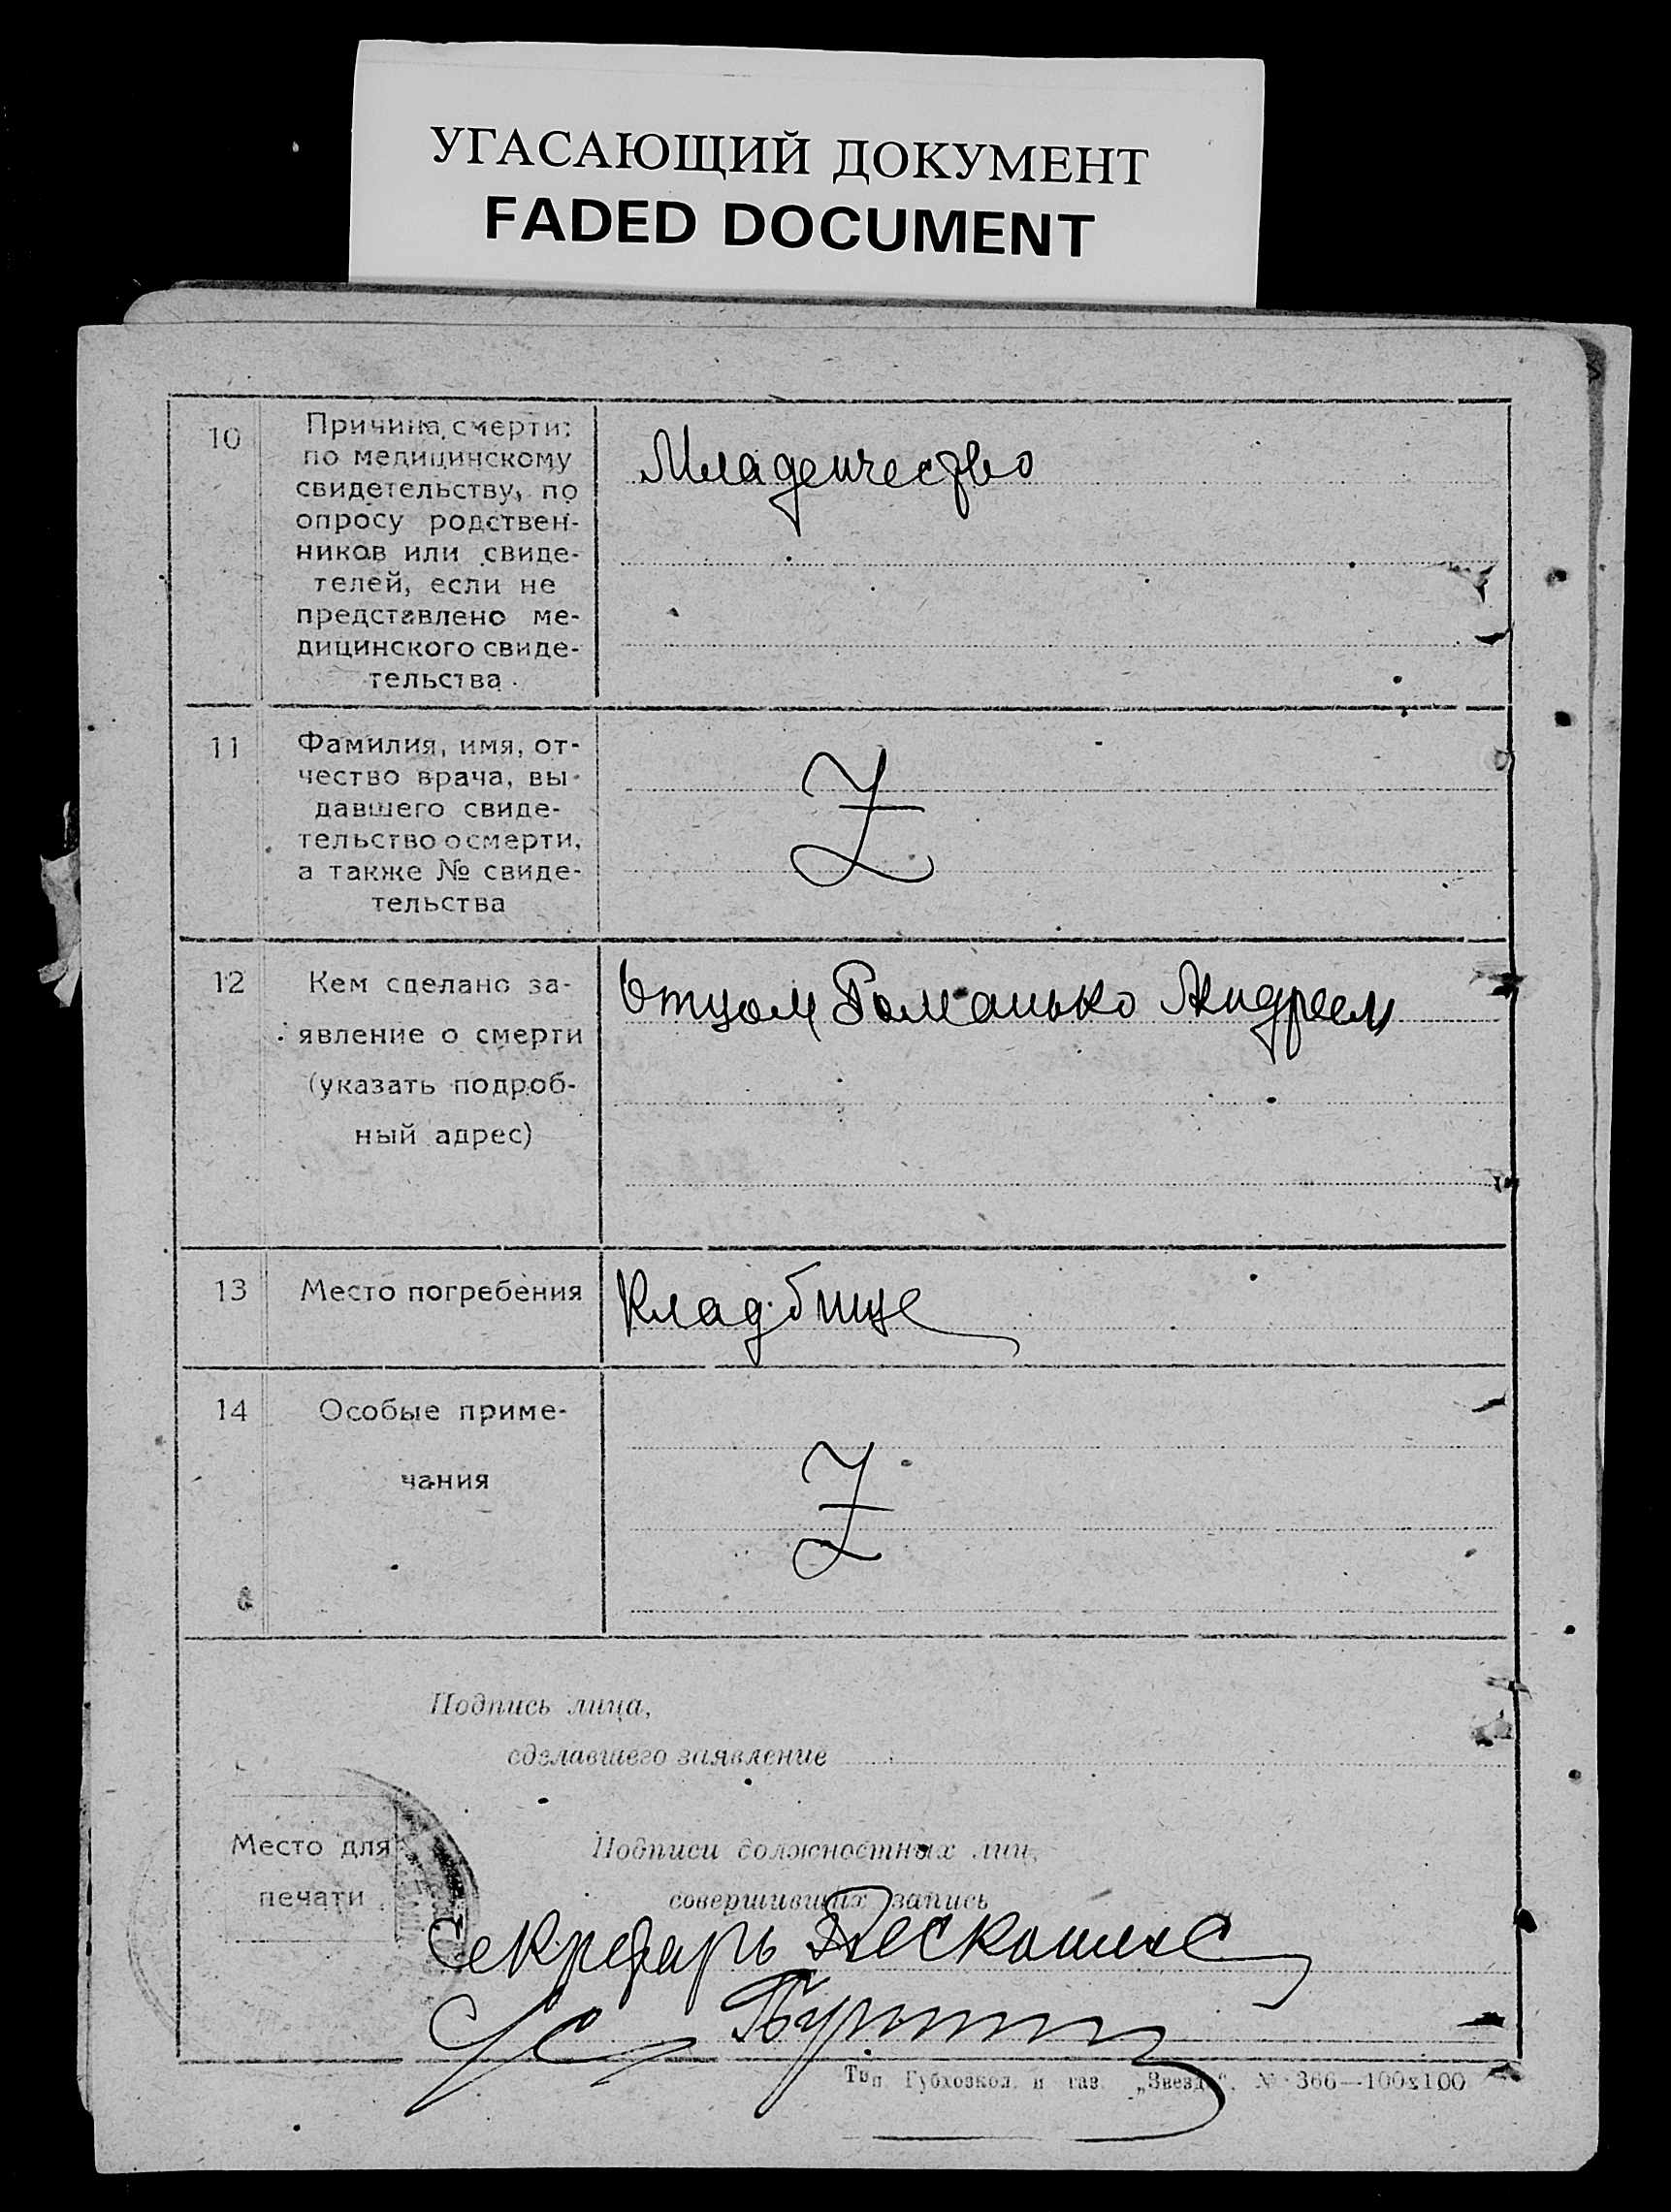 УГАСАЮЩИЙ ДОКУМЕНТ
FADED DOCUMENT
10
Причина смерти:
по медицинскому
свидетельству, по
опросу родствен-
ников или свиде-
телей, если не
представлено ме-
дицинского свиде-
тельства
Младенчество
11
Фамилия, имя, от-
чество врача, вы-
давшего свиде-
тельство о смерти,
а также № свиде-
тельства
Z
12
Кем сделано за-
явление о смерти
(указать подроб-
ный адрес)
Отцом Романько Андреем
13
Место погребения
Кладбище
14
Особые приме-
чания
Z
Подпись лица,
сделавшего заявление
Место для
печати
Подписи должностных лиц,
совершивших запись
Секретарь
Тип. Губхозкол. и газ. „Звезда“. № 366—100х100